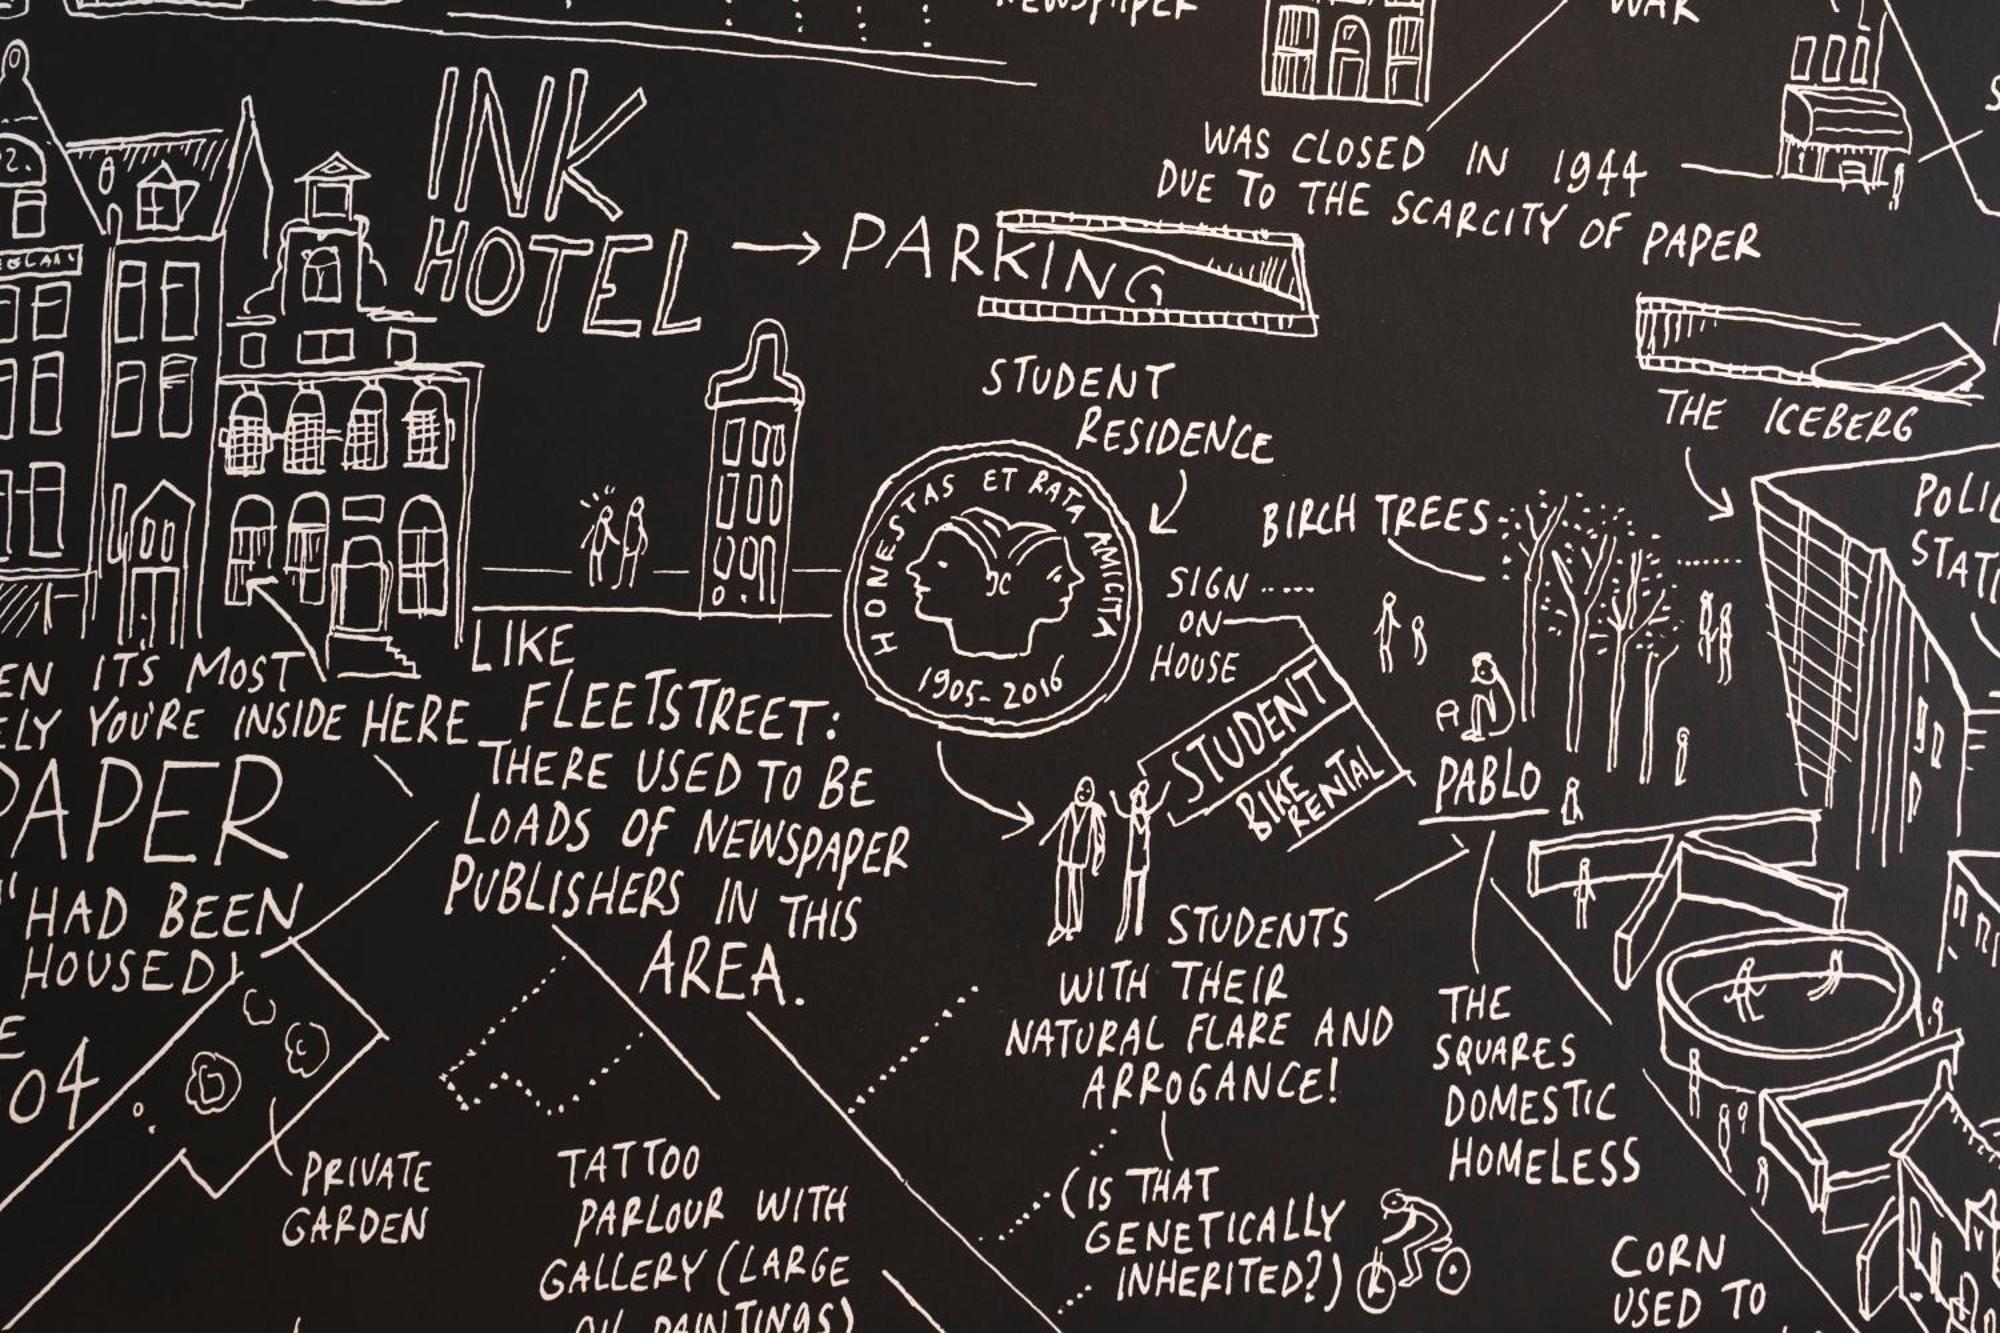 NEWSPAPER
WAR
INK
HOTEL
PARKING
WAS CLOSED IN 1944
DUE TO THE SCARCITY OF PAPER
STUDENT
RESIDENCE
THE ICEBERG
HONESTAS ET RATA AMICITA
JC
1905-2016
BIRCH TREES
SIGN
ON
HOUSE
STUDENT
BIKE
RENTAL
IT'S MOST
YOU'RE INSIDE HERE
PAPER
HAD BEEN
HOUSED)
04
LIKE
FLEETSTREET:
THERE USED TO BE
LOADS OF NEWSPAPER
PUBLISHERS IN THIS
AREA.
PABLO
THE
SQUARES
DOMESTIC
HOMELESS
STUDENTS
WITH THEIR
NATURAL FLARE AND
ARROGANCE!
(IS THAT
GENETICALLY
INHERITED?)
PRIVATE
GARDEN
TATTOO
PARLOUR WITH
GALLERY (LARGE
OIL PAINTINGS)
CORN
USED TO